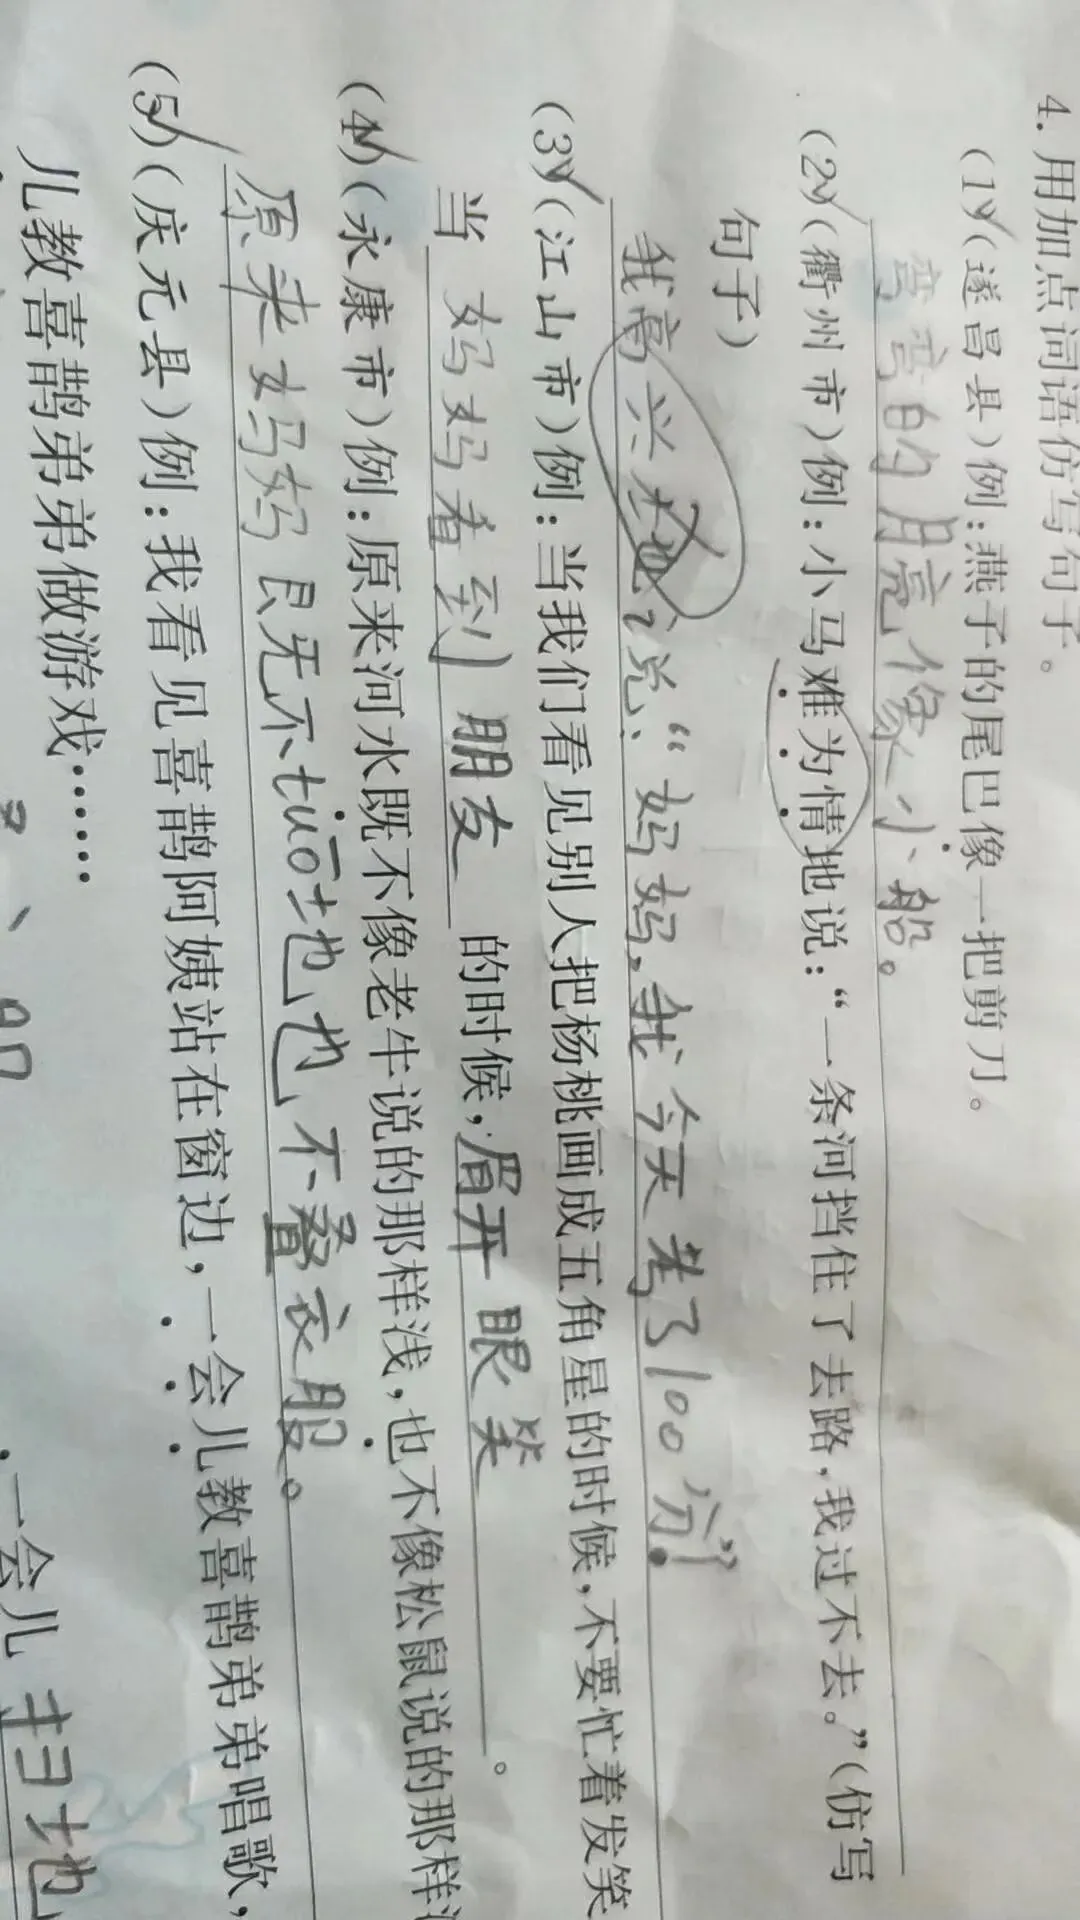 4.用加点词语仿写句子。
(1)(遂昌县)例:燕子的尾巴像一把剪刀。
弯弯的月亮像小船。
(2)(衢州市)例:小马难为情地说:“一条河挡住了去路,我过不去。”(仿写
句子)
我高兴地说:“妈妈,我今天考了100分!”
(3)(江山市)例:当我们看见别人把杨桃画成五角星的时候,不要忙着发笑
当妈妈看到朋友的时候,眉开眼笑。
(4)(永康市)例:原来河水既不像老牛说的那样浅,也不像松鼠说的那样
原来妈妈既不tuō地也不叠衣服。
(5)(庆元县)例:我看见喜鹊阿姨站在窗边,一会儿教喜鹊弟弟唱歌,
儿教喜鹊弟弟做游戏……
一会儿扫地